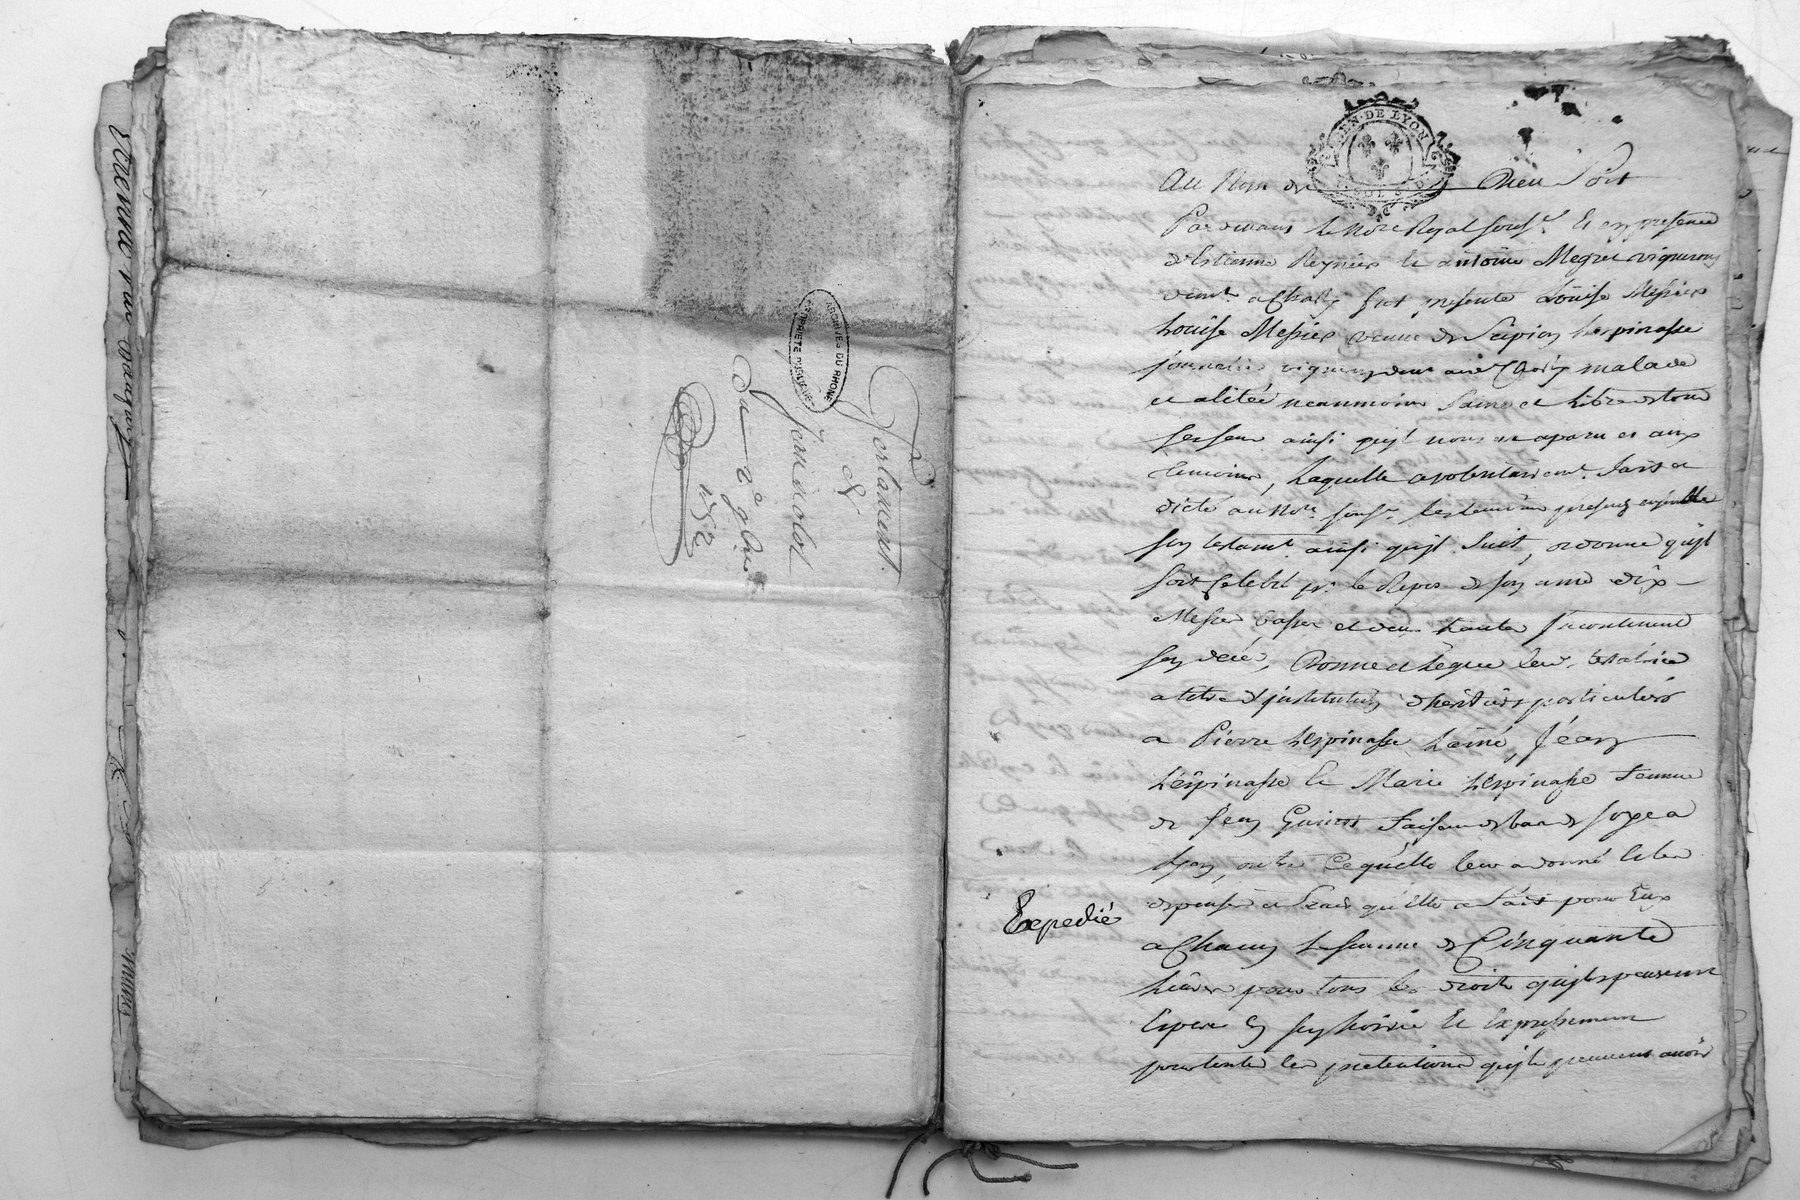 Testament.
de
Jean volot
Du 2e 9bre
1752
ARCHIVES DU RHONE
PROPRIETE PUBLIQUE
GEN. DE LYON
SOL
Au Nom de Dieu Soit
Pardevant le Nore Royal sousé. Et en presence
d'Estienne Reynier et antoine Megret vignerons
demt. a fut presente Loüise Messier
Loüise Messier veuve de Scipion Lespinasse
vigneron demt. malade
et alitée neanmoins saine et libre de tous
ses sens ainsi qu'jl nous est aparu et aux
temoins, Laquelle a volontairemt. fait et
dicté au Nore. sousé. les temoins presens
son testamt. ainsi qu'jl suit, ordonne qu'jl
soit celebré pr. le Repos de son ame dix
Messes basses et deux hautes jncontinent
son decés, Donne et Legue lad. testatrice
a titre d'jnstitution d'heritiers particuliers
a Pierre Lespinasse L'ainé, Jean
Lespinasse Et Marie Lespinasse femme
de Jean faiseur de bas de soye a
Lyon, outre ce qu'elle leur a donné et les
depenses et frais qu'elle a fait pour Eux
a Chacun la somme de Cinquante
Livres pour tous les droits qu'jls peuvent
Esperer en son hoirie Et Expressement
pour toutes les pretentions qu'jls peuvent avoir
Expedié